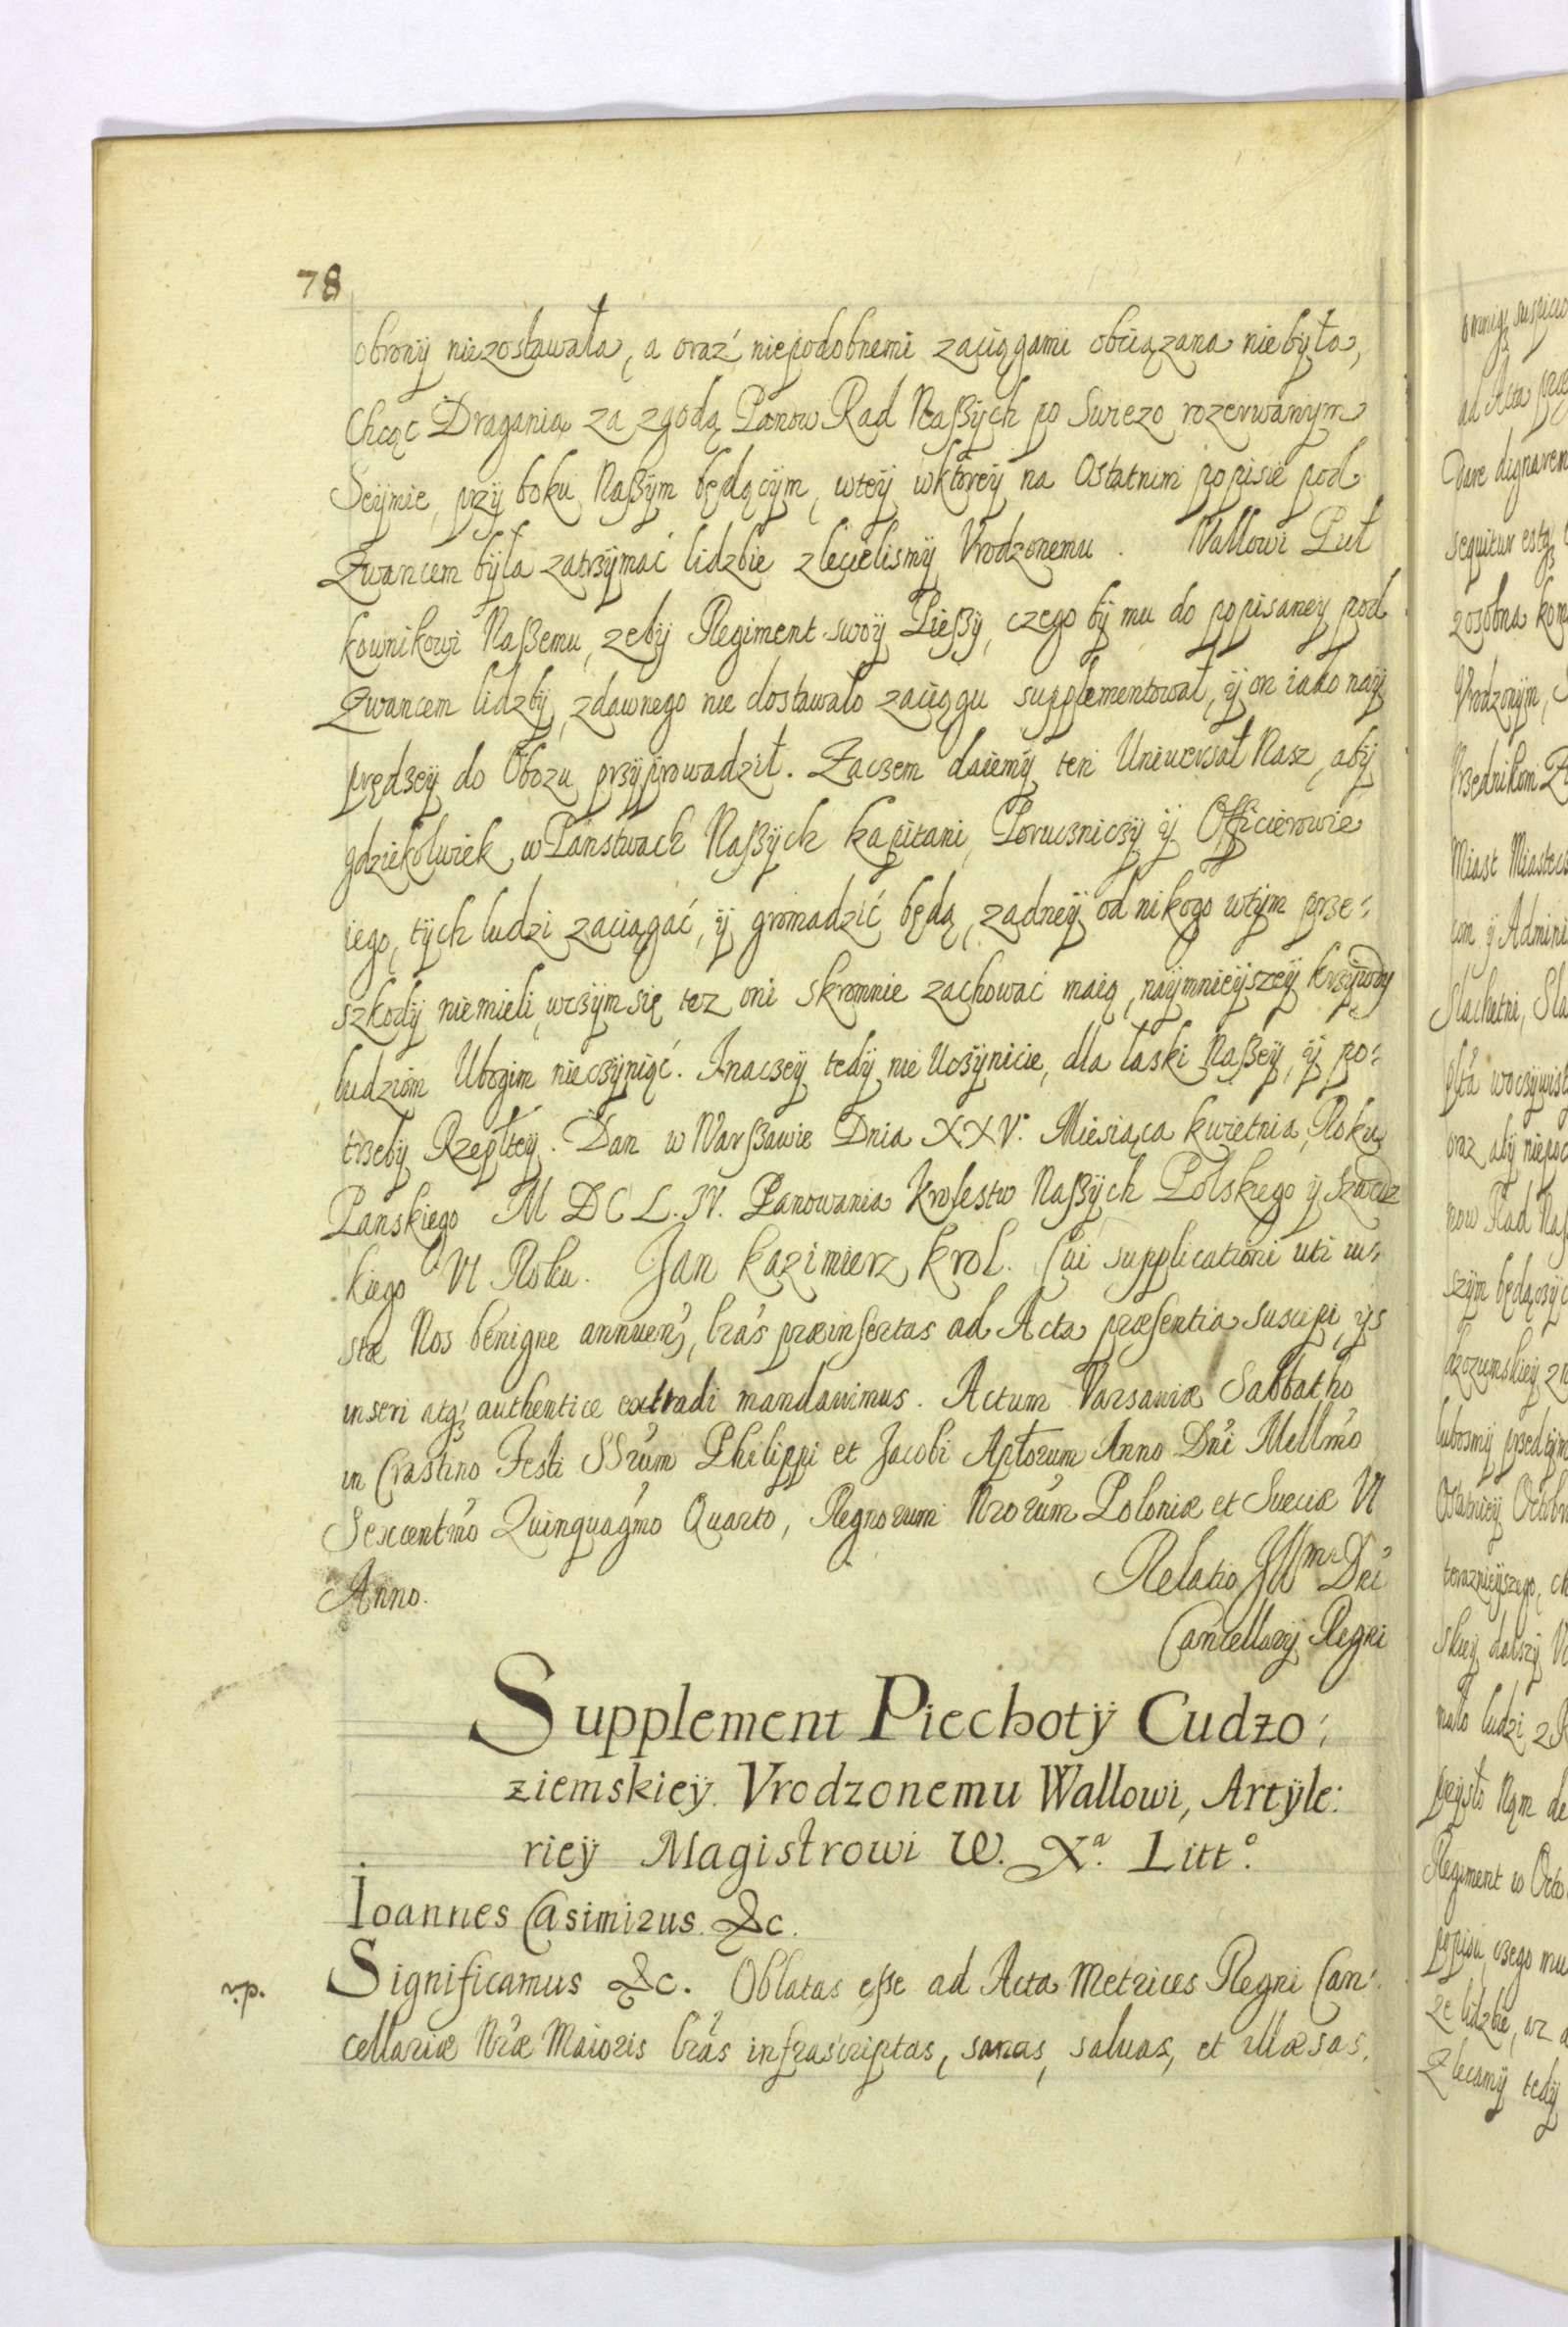 78
obrony niezostawała, a oraz niepodobnemi zaciągami obciązana niebyła,
Chcąc Dragania za zgodą Panow Rad Naßych po Swiezo rozerwanym
Seymie, przy boku Naßym będącym, wtey wktorey na Ostatnim popisie pod
Zwancem była zatrzymać lidzbie zlecielismy Vrodzonemu . Wallowi Puł
kownikowi Naßemu, zeby Regiment swoy Pießy, czego by mu do popisaney pod
Zwancem lidzby, zdawnego nie dostawało zaciągu supplementował, y on iako nay
prędzey do Obozu przyprowadził. Zaczem daiemy ten Uniuersał Nasz, aby
gdziekolwiek w Panstwach Naßych kapitani, Porucznicy y Officierowie
iego, tych ludzi zaciągać, y gromadzić będą, zadney od nikogo wtym prze:
szkody niemieli, wczym się tez oni skromnie zachować maią, naymnieyszey krzywdy
ludziom Ubogim nieczyniąć. Inaczey tedy nie Uczynicie, dla łaski Naßey, y po:
trzeby Rzepltey. Dan w Warßawie Dnia XXV. Miesiąca kwietnia, Roku
Panskiego M DC L.IV. Panowania Krolestw Naßych Polskiego y Szwedz
kiego VI Roku. Jan Kazimierz Krol. Cui supplicationi uti ius:
stæ Nos benigne annuen, lras præinsertas ad Acta præsentia suscipi, ys
inseri atq authentice extradi mandauimus. Actum Varsauiæ Sabbatho
in Crastino Festi SSrum Philippi et Jacobi Aptorum Anno Dni Mellmo
Sexcentmo Quinquagmo Quarto, Regnorum Nrorum Poloniæ et Sueciæ VI
Anno.
Relatio Illmi Dni
Cancellarij Regni
Supplement Piechoty Cudzo:
ziemskiey Vrodzonemu Wallowi, Artyle:
riey Magistrowi W. Xa. Litto.
Ioannes Casimirus &c.
Significamus &c. Oblatas esse ad Acta Metrices Regni Can:
cellariæ Nræ Maioris lras infrascriptas, sanas, saluas, et illæsas,
ad Acta
Dare dignaren
sequitur estq
zosobna
Vrodzonym,
Vrzednikom
Miast Miastecz
y Admini
Slachetni, Sla
woczywist
oraz aby niepod
now Rad Naß
szym będącyc
przedtym
Ostatniey Octobr
teraznieyszego,
skiey
mało ludzi z
Regiment w Octo
popisu, czego mu
ze lidzbie,
Zlecamy tedy